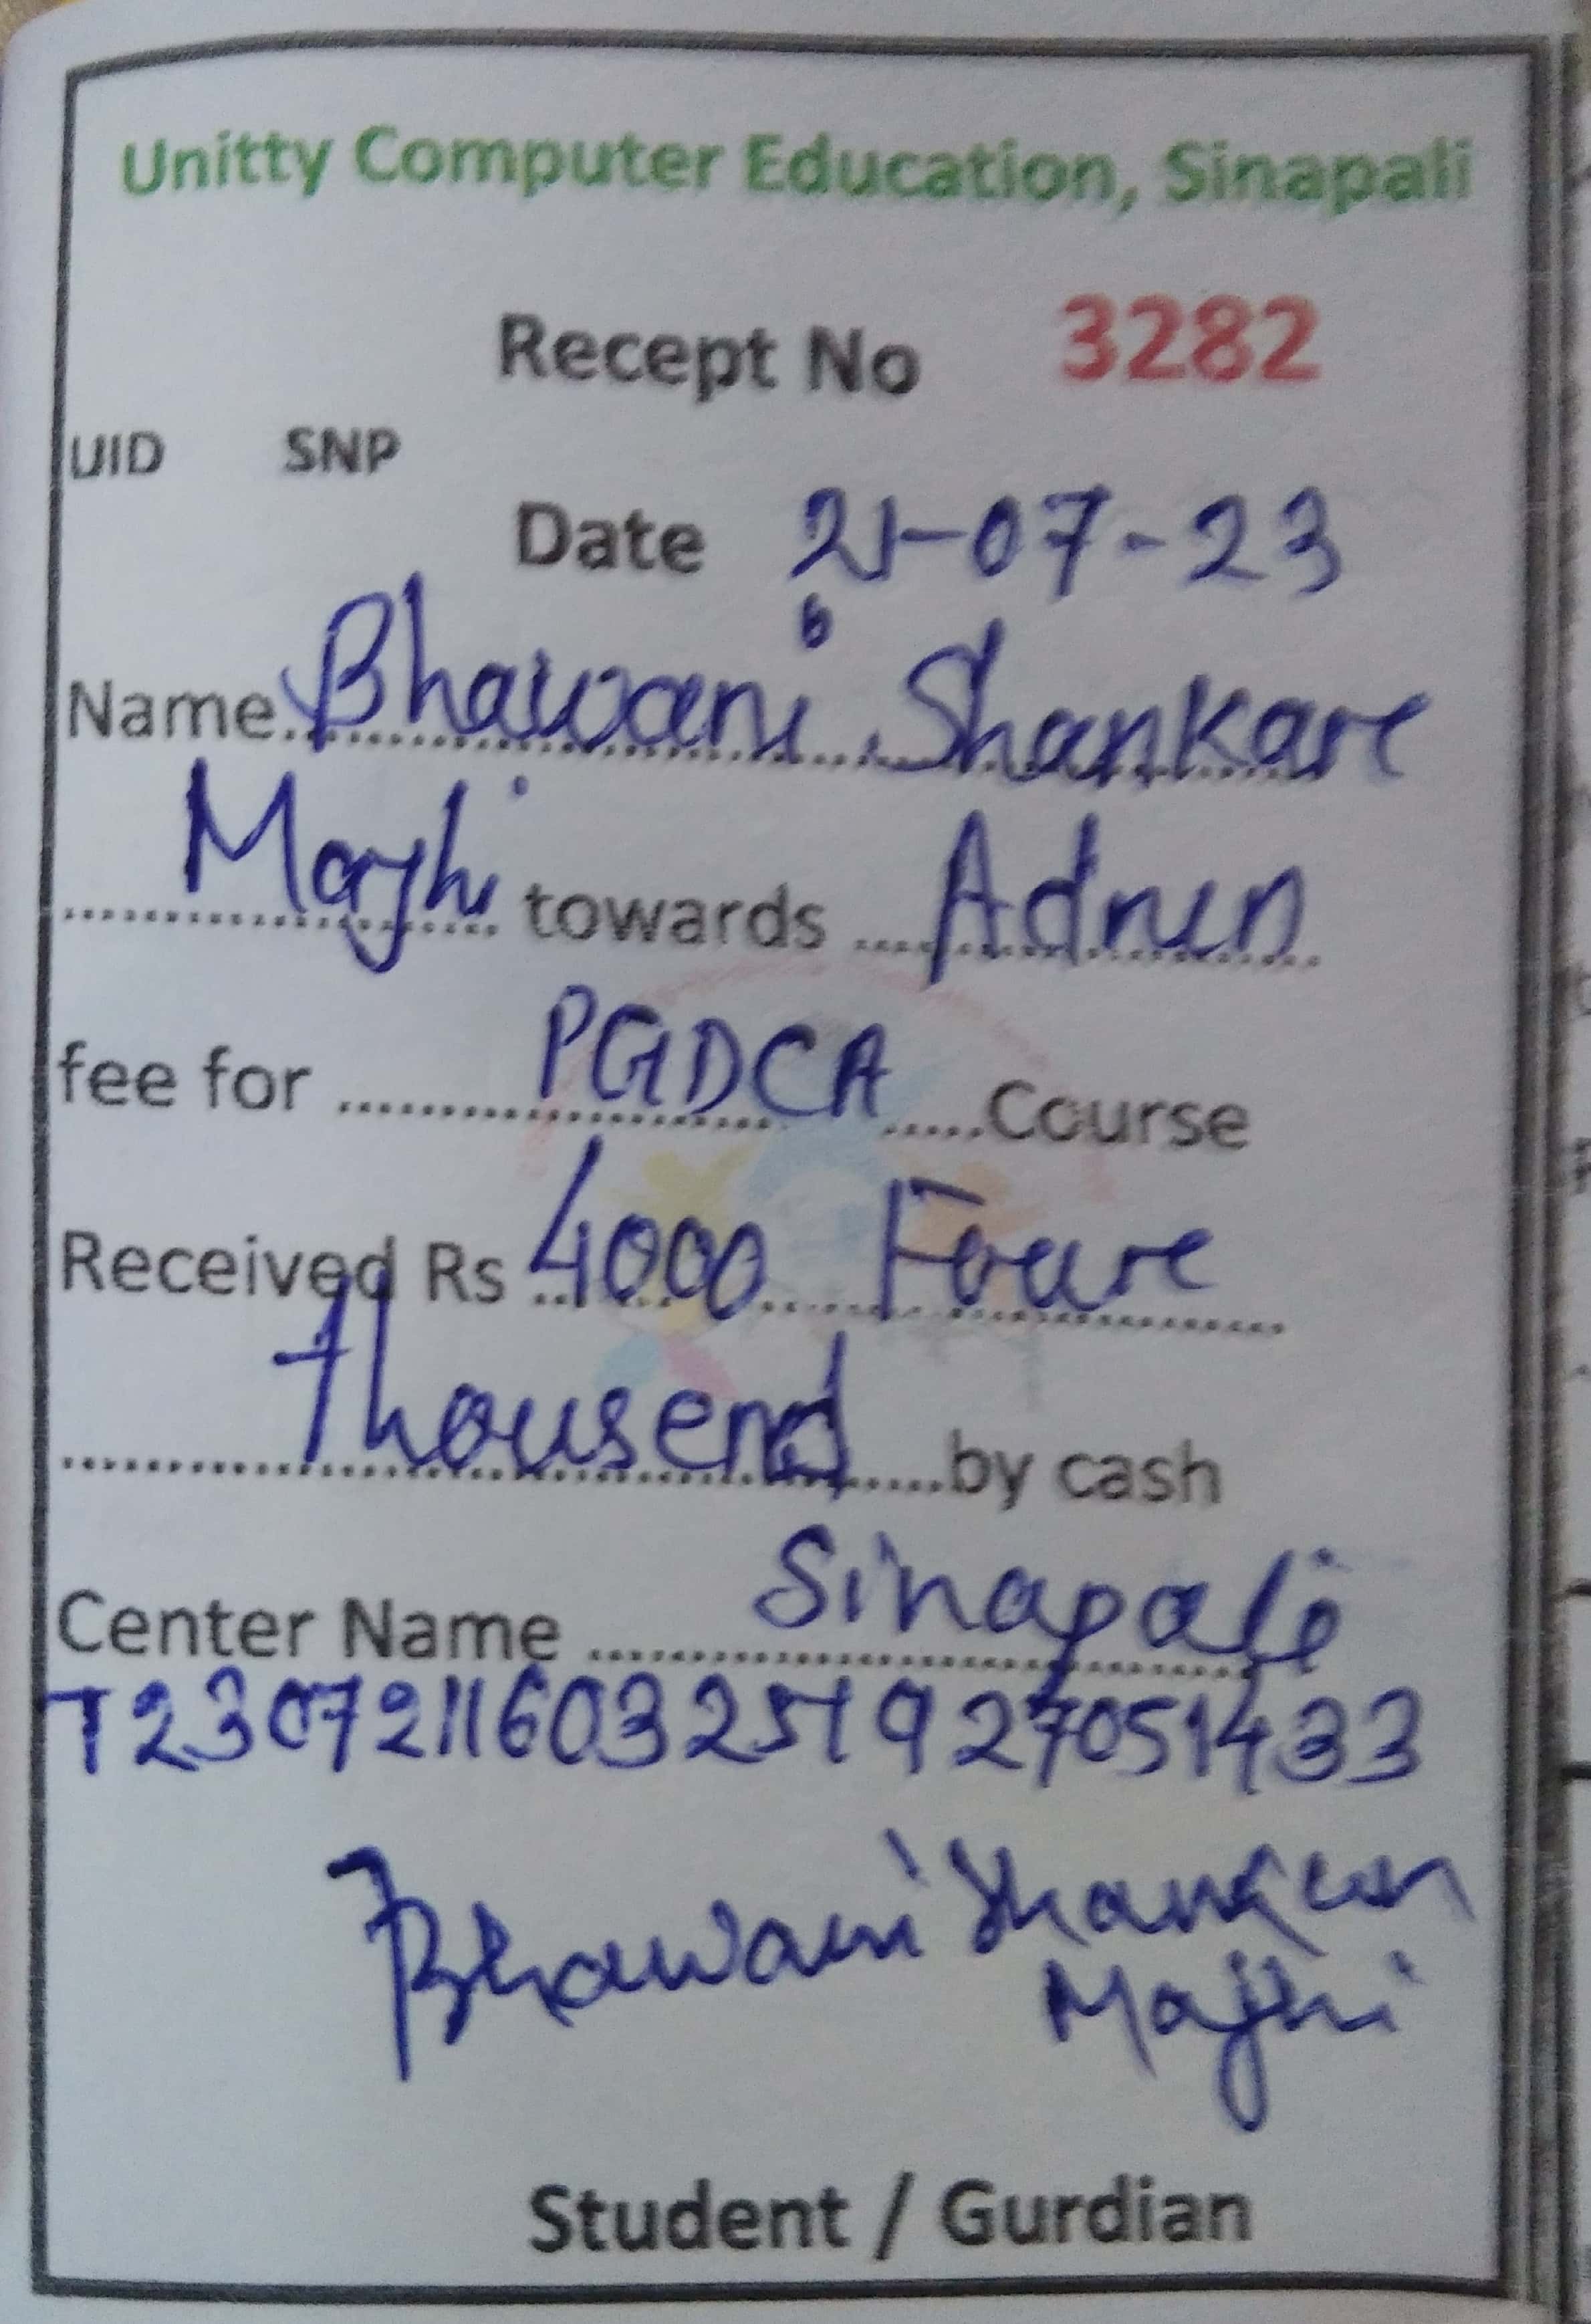 Unitty Computer Education, Sinapali
Recept No 3282
UID SNP
Date 21-07-23
Name Bhawani Shankare
Majhi towards Admn
fee for PGDCA Course
Received Rs 4000 Foure
thousend by cash
Center Name Sinapali
T2307211603251927051433
Bhawani Shankar
Majhi
Student / Gurdian